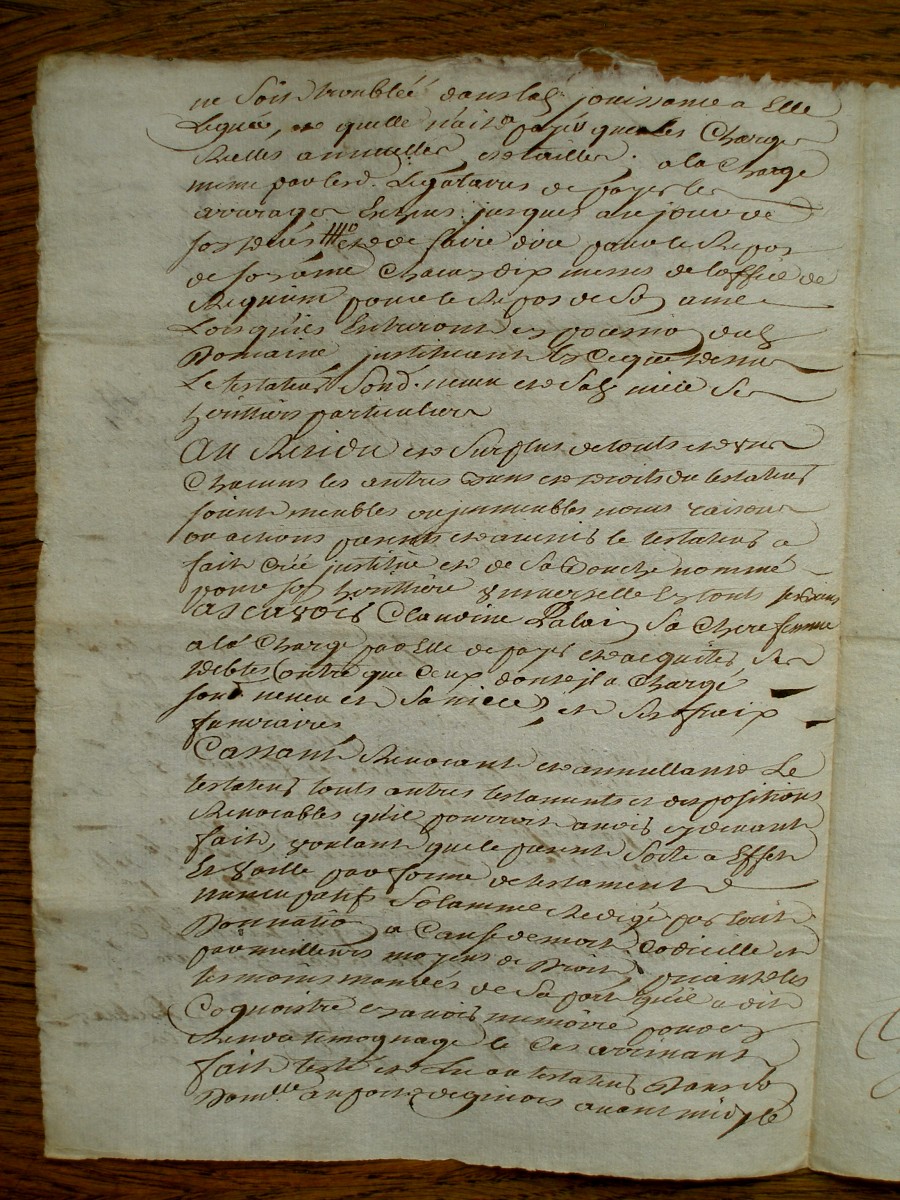 ne soit troublée dans lad. jouissance a Elle
Leguée, et quelle n'ait a payer que les Charges
Reelles annuelles et tailles. a la Charge
meme par lesd. Legataires de payer les
arrerages Echeus jusques au jour de
son deces et de faire dire pour le Repos
de son ame Chacun dix messes de l'office de
Requiem pour le Repos de son ame
Lorsqu'ils Entreront en possession dud.
Domaine justituant En ce que dessus
Le testateur sond. neveu et sad. niece ses
heritiers particuliers
Au Residu et surplus de touts et uns
Chacuns les autres biens et droits du testateur
soient meubles ou immeubles noms raisons
ou actions presents et avenir le testateur a
fait créé justitué et de sa bouche nommé
pour son heritiere universelle En touts ses biens
a scavoir Claudine sa chere femme
a la Charge par Elle de payer et acquiter ses
debtes (outre que Ceux dont il a Chargé
sond neveu et sa niece) et ses fraix
funeraires
Cassant Revocant et annullant Le
testateur touts autres testaments et dispositions
Revocables qu'il pourroit avoir cy devant
fait, voulant que le present sorte a Effet
Et vaille par forme de testament
nuncupatif solamme Redigé par Ecrit
Donnatio a Cause de mort Codicille et
par meilleurs moyens de Droit, priant les
tesmoins mandés de sa part qu'il a dit
Cognoistre et avoir memoire pour en
Rendre temognage le Cas arrivant
fait testé et Lu au testateur Dans son
Domlle avant midy le